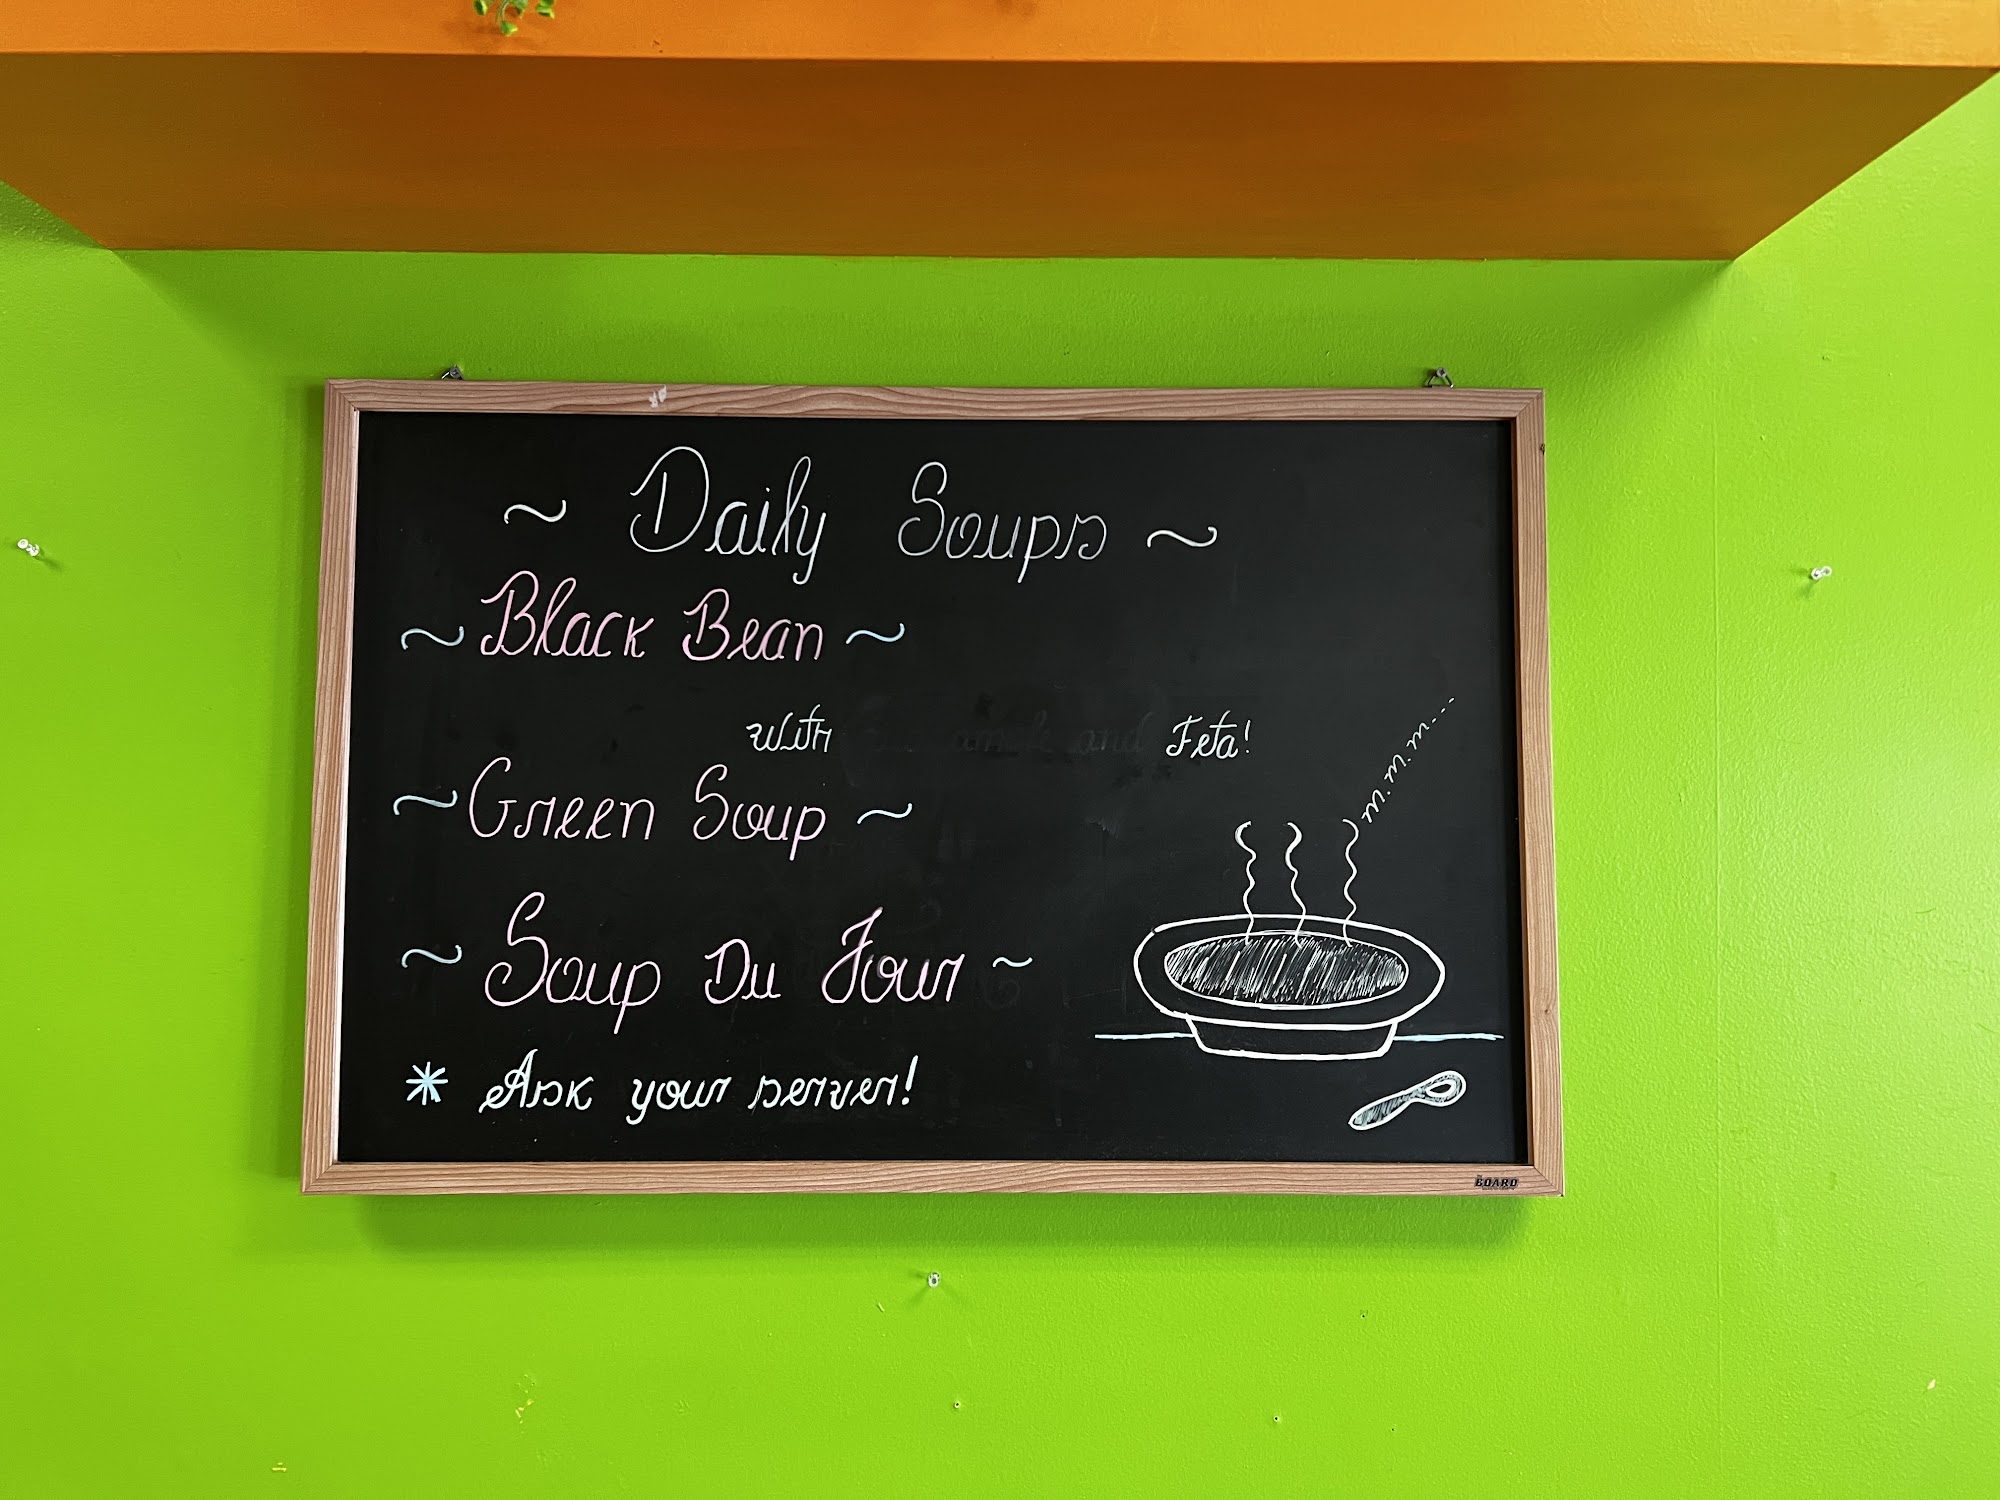 ~ Daily Soups ~
~ Black Bean ~
with Feta!
~ Green Soup ~
~ Soup Du Jour ~
* Ask your server!
BOARD